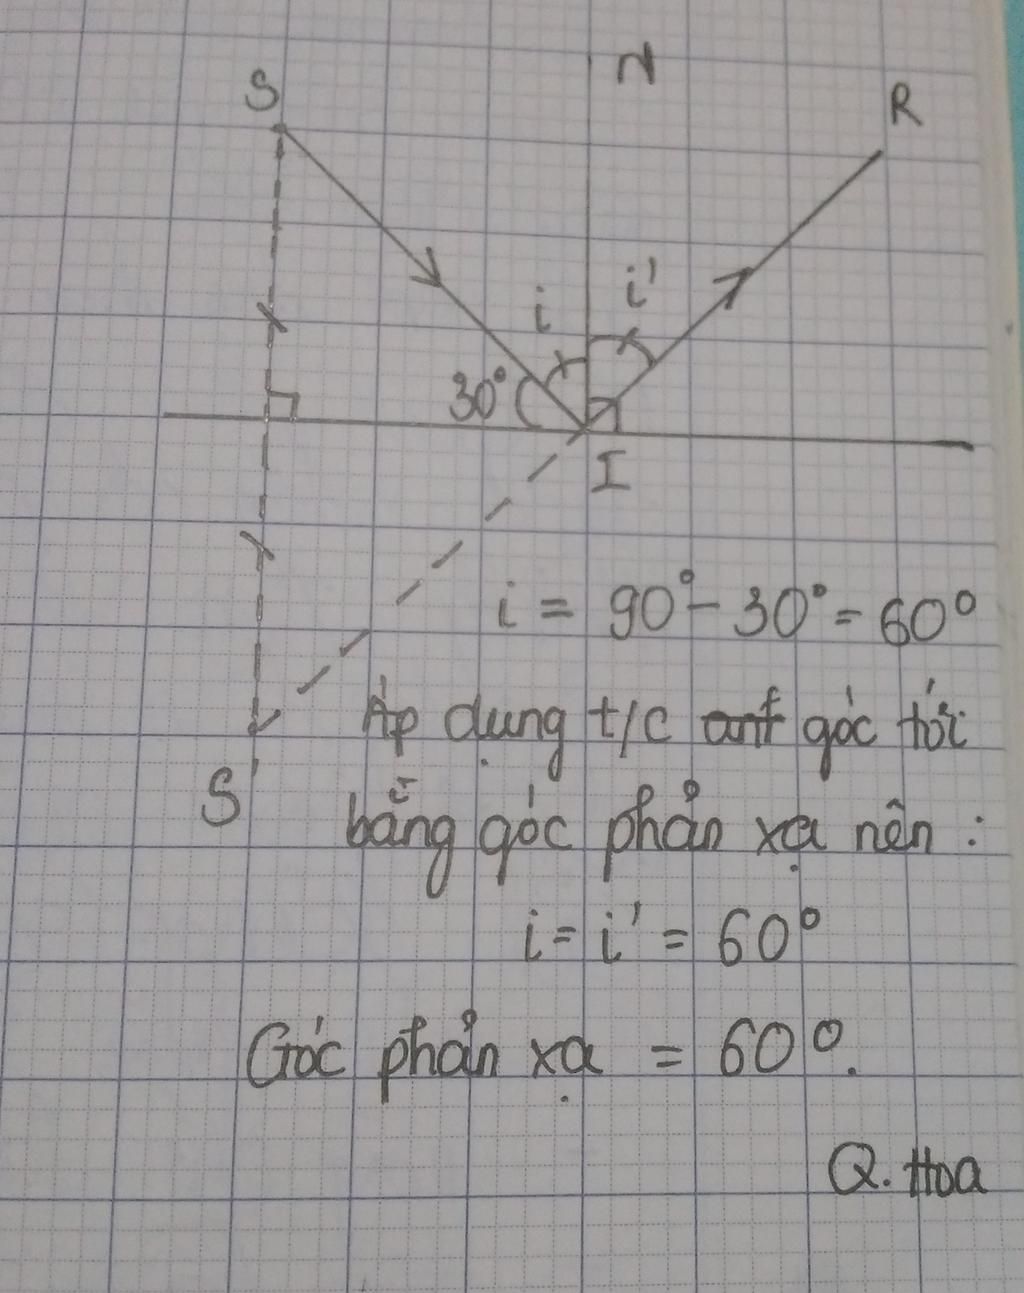 S
N
R
i
i'
30°
I
i = 90° - 30° = 60°
Áp dụng t/c góc tới
S'
bằng góc phản xạ nên :
i = i' = 60°
Góc phản xạ = 60°.
Q. Hoa